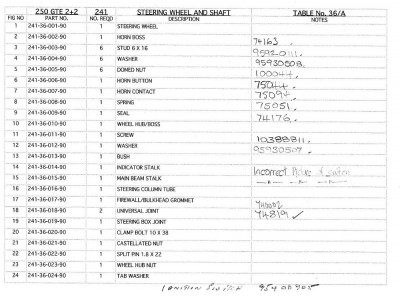 250 GTE 2+2 241 STEERING WHEEL AND SHAFT TABLE No. 36/A
FIG NO PART NO. NO. REQD DESCRIPTION NOTES
1 241-36-001-90 1 STEERING WHEEL
2 241-36-002-90 1 HORN BOSS 74163
3 241-36-003-90 6 STUD 6 X 16 95920111.
4 241-36-004-90 6 WASHER 95930508.
5 241-36-005-90 6 DOMED NUT 100044.
6 241-36-006-90 1 HORN BUTTON 75044.
7 241-36-007-90 1 HORN CONTACT 75094.
8 241-36-008-90 1 SPRING 75051.
9 241-36-009-90 1 SEAL 74176.
10 241-36-010-90 1 WHEEL HUB/BOSS
11 241-36-011-90 1 SCREW 10388811.
12 241-36-012-90 1 WASHER 95930507.
13 241-36-013-90 1 BUSH
14 241-36-014-90 1 INDICATOR STALK Incorrect
15 241-36-015-90 1 MAIN BEAM STALK
16 241-36-016-90 1 STEERING COLUMN TUBE
17 241-36-017-90 1 FIREWALL/BULKHEAD GROMMET
18 241-36-018-90 2 UNIVERSAL JOINT 74819 ✓
19 241-36-019-90 1 STEERING BOX JOINT
20 241-36-020-90 1 CLAMP BOLT 10 X 38
21 241-36-021-90 1 CASTELLATED NUT
22 241-36-022-90 1 SPLIT PIN 1.8 X 22
23 241-36-023-90 1 WHEEL HUB NUT
24 241-36-024-90 1 TAB WASHER
IGNITION SWITCH